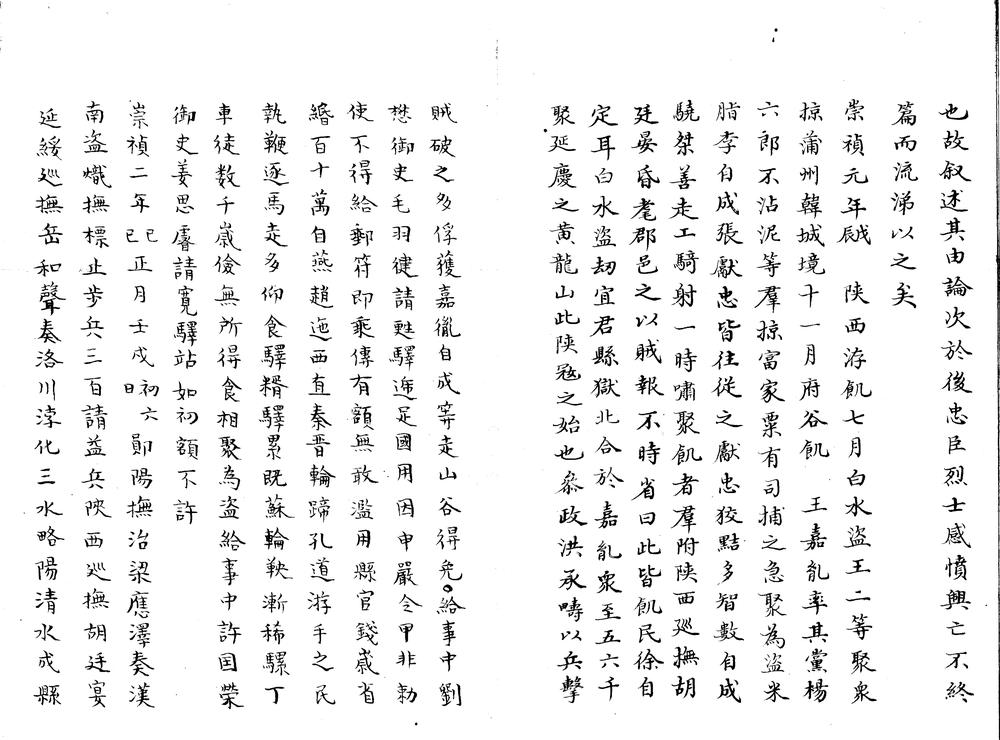 也故叙述其由論次於後忠臣烈士感憤興亡不終
篇而流涕以之矣
崇禎元年戊辰 陜西洊飢七月白水盜王二等聚衆
掠蒲州韓城境十一月府谷飢 王嘉胤率其黨楊
六郎不沾泥等羣掠富家粟有司捕之急聚為盜米
脂李自成張獻忠皆往從之獻忠狡黠多智數自成
驍桀善走工騎射一時嘯聚飢者羣附陜西廵撫胡
廷晏昏耄郡邑之以賊報不時省曰此皆飢民徐自
定耳白水盜劫宜君縣獄北合於嘉胤衆至五六千
聚延慶之黃龍山此陜冦之始也叅政洪承疇以兵擊
賊破之多俘獲嘉胤自成等走山谷得免。給事中劉
懋御史毛羽健請甦驛遞足國用因申嚴令甲非勅
使不得給郵符即乘傳有額無敢濫用縣官錢歲省
緡百十萬自燕趙迤西直秦晋輪蹄孔道游手之民
執鞭逐馬走多仰食驛糈驛累既蘇輪鞅漸稀騾丁
車徒数千歲儉無所得食相聚為盜給事中許国榮
御史姜思睿請寛驛站如初額不許
崇禎二年己巳正月壬戌初六日鄖陽撫治梁應澤奏漢
南盜熾撫標止步兵三百請益兵陜西廵撫胡廷宴
延綏廵撫岳和聲奏洛川淳化三水略陽清水成縣